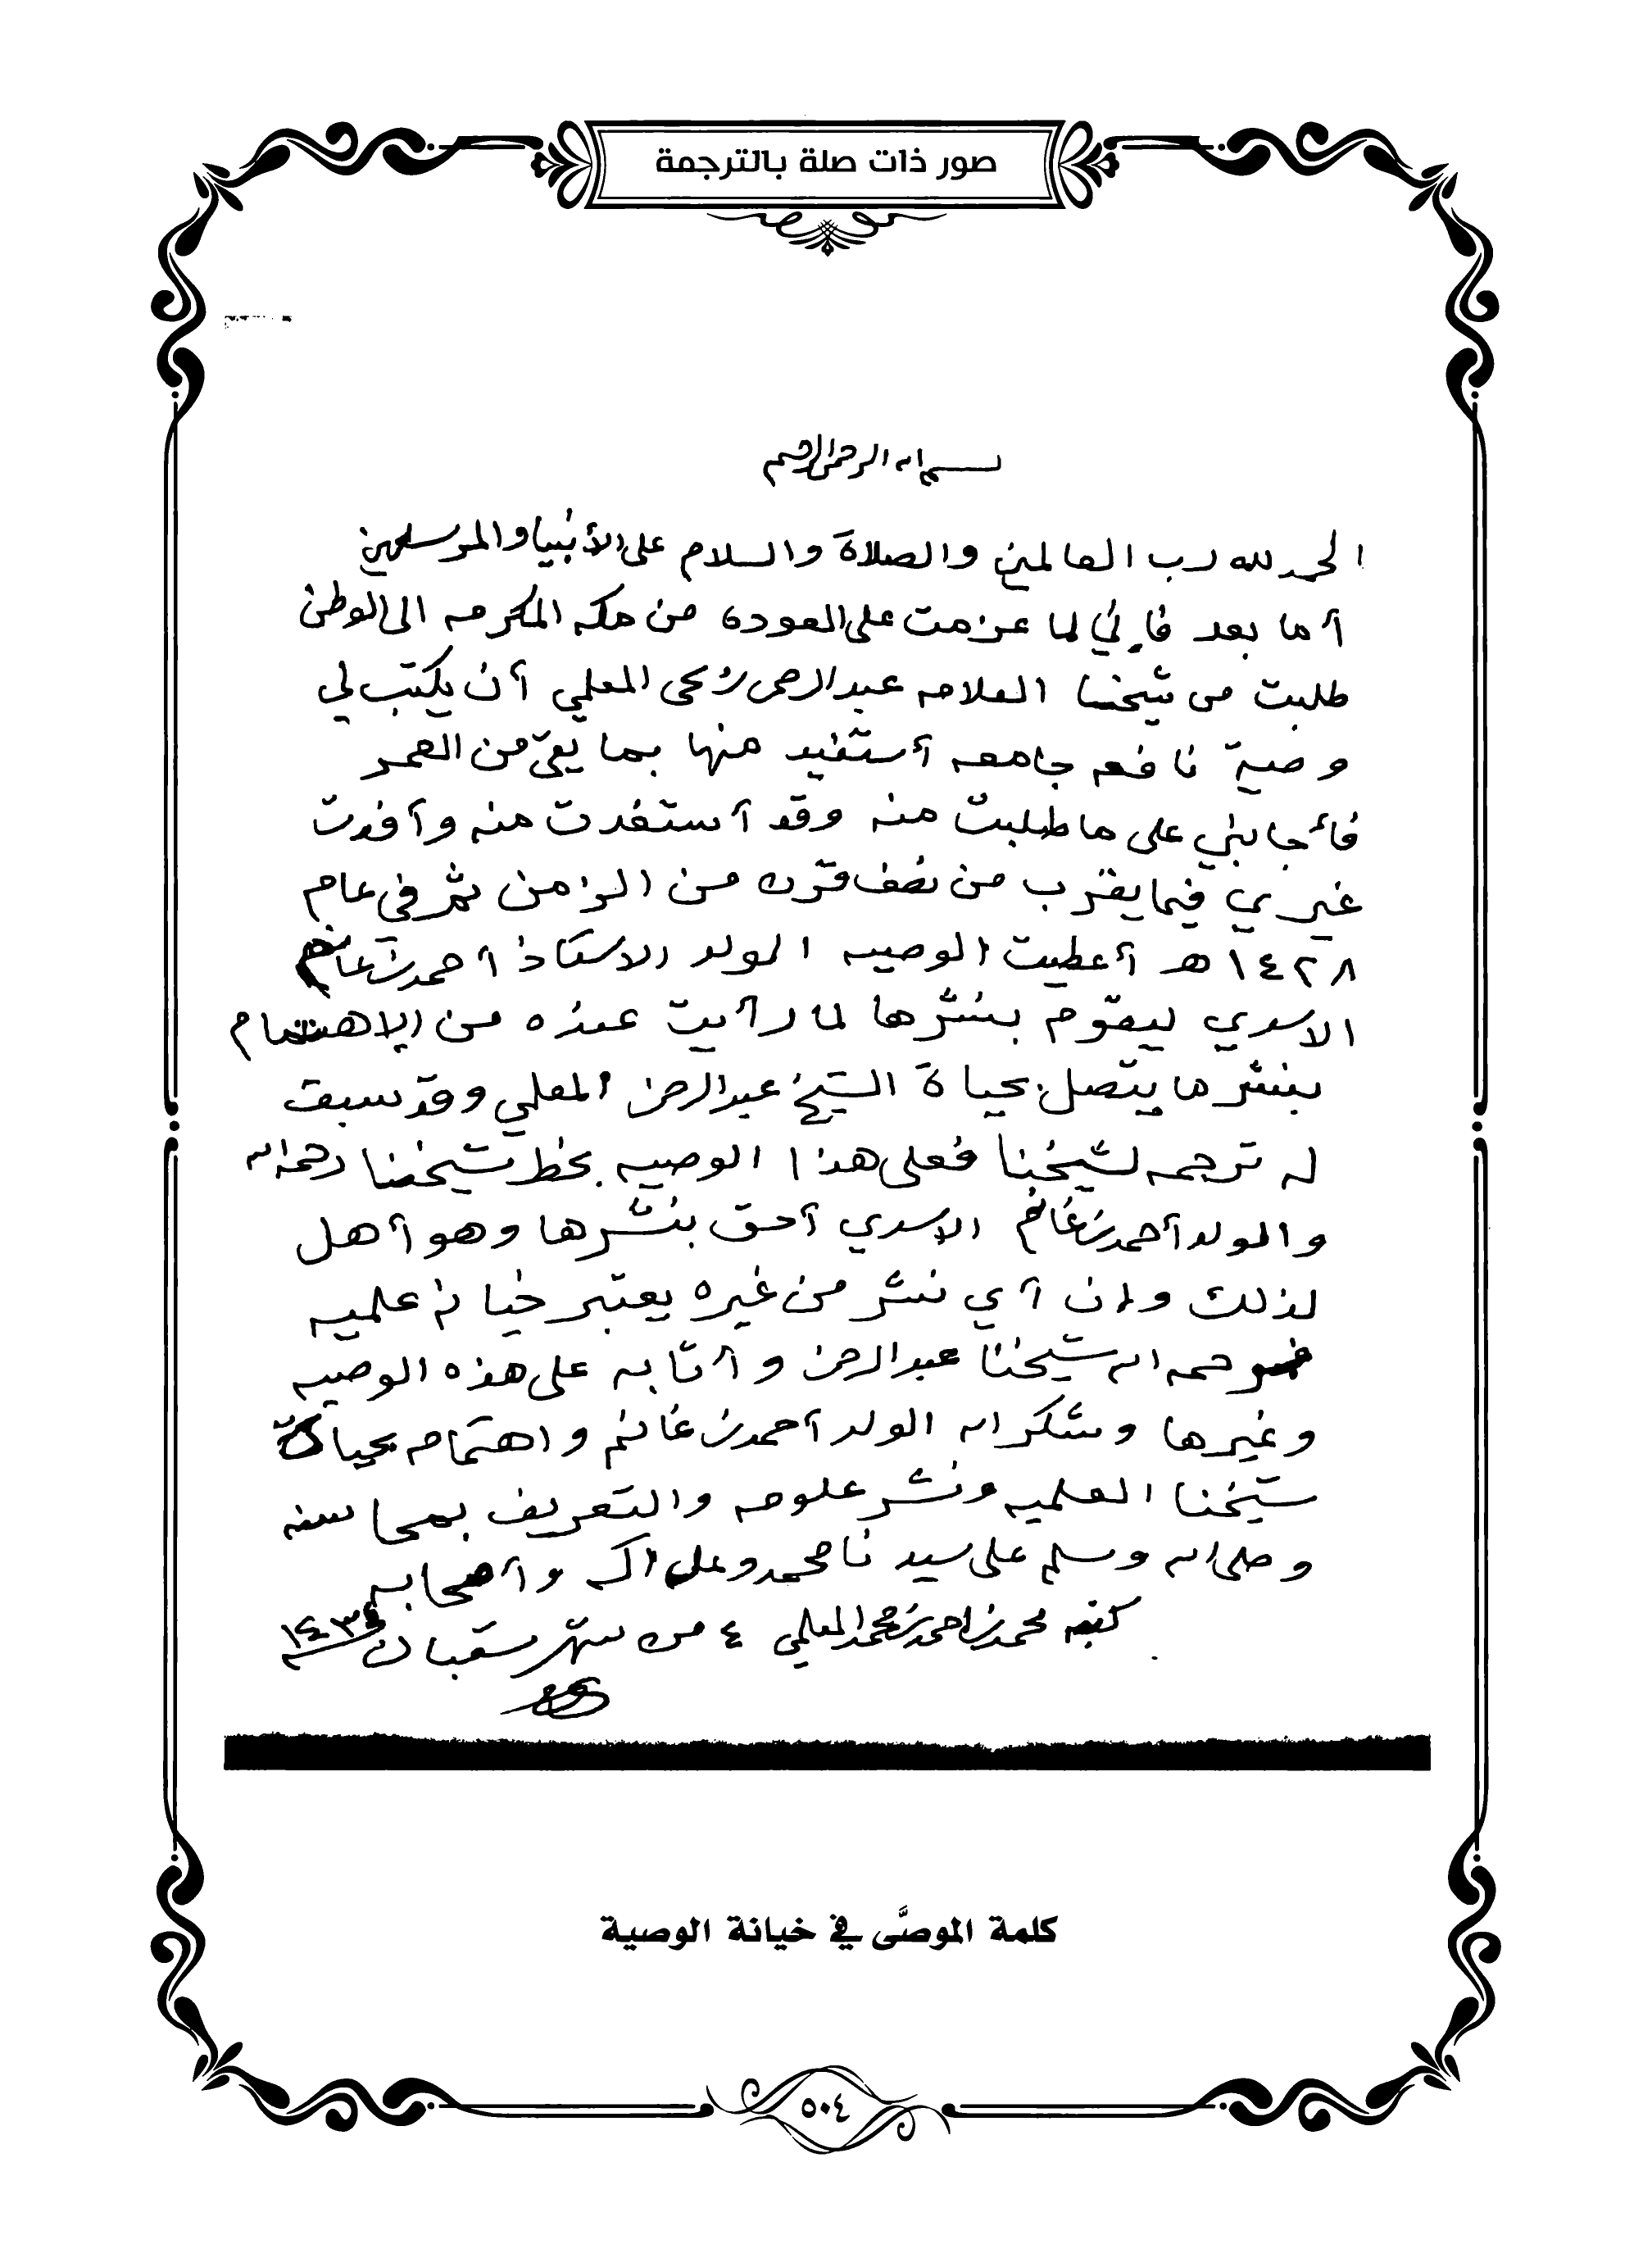 صور ذات صلة بالترجمة
بسم الله الرحمن الرحيم
الحمد لله رب العالمين والصلاة والسلام على الأنبيا والمرسلين
أما بعد فإني لما عزمت على العوده من مكه المكرمه الى الوطن
طلبت من شيخنا العلامه عبدالرحمن بن يحيى المعلمي أن يكتب لي
وصية نافعه جامعه أستفيد منها بما بقي من العمر
فأجابني على ما طلبت منه وقد أستفدت منه وأفدت
غيري فيما يقرب من نصف قرن من الزمن ثم في عام
١٤٢٨ هـ أعطيت الوصيه الولد الاستاذ أحمد بن غانم
الاسدي ليقوم بنشرها لما رأيت عنده من الإهتمام
بنشر ما يتصل بحياة الشيخ عبدالرحمن المعلمي وقد سبقت
له ترجمه لشيخنا فعلى هذا الوصيه بخط شيخنا رحمه الله
والولد أحمد بن غانم الاسدي أحق بنشرها وهو أهل
لذلك وإن أي نشر من غيره يعتبر خيانة علميه
فرحمه الله شيخنا عبدالرحمن وأثابه على هذه الوصيه
وغيرها وشكر الله الولد أحمد بن غانم واهتمامه بحياة
شيخنا العلميه ونشر علومه والتعريف بمحاسنه
وصلى الله وسلم على سيدنا محمد وعلى اله وأصحابه
كتبه محمد بن احمد بن محمد المعلمي ٤ من شهر شعبان ١٤٣٤
كلمة الموصَّى في خيانة الوصية
٥٠٤